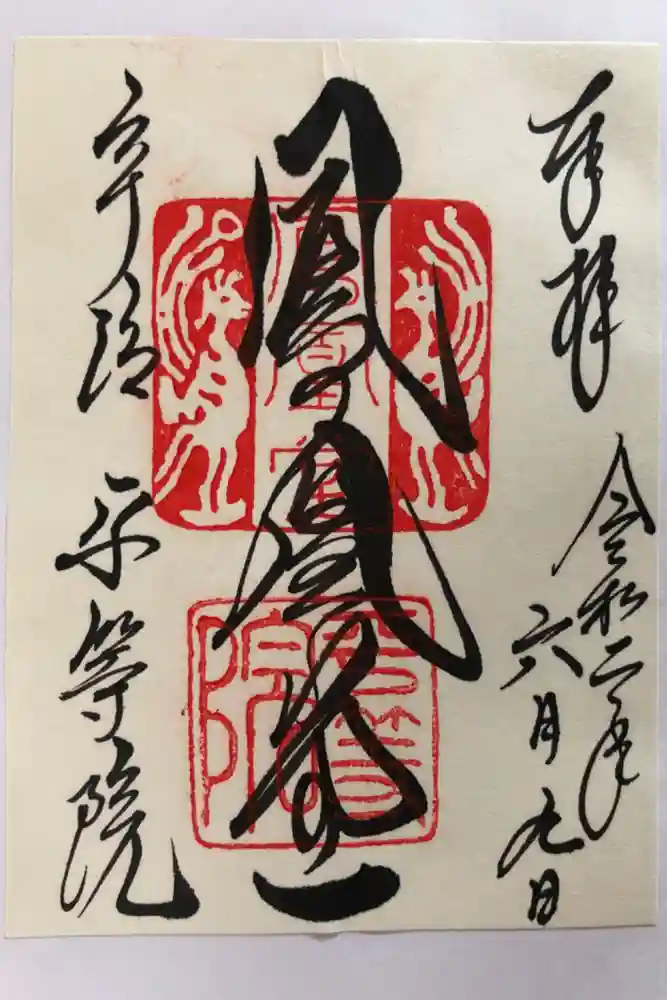 奉拝
令和二年
六月九日
鳳凰堂
宇治 平等院
鳳凰堂印
平等院印